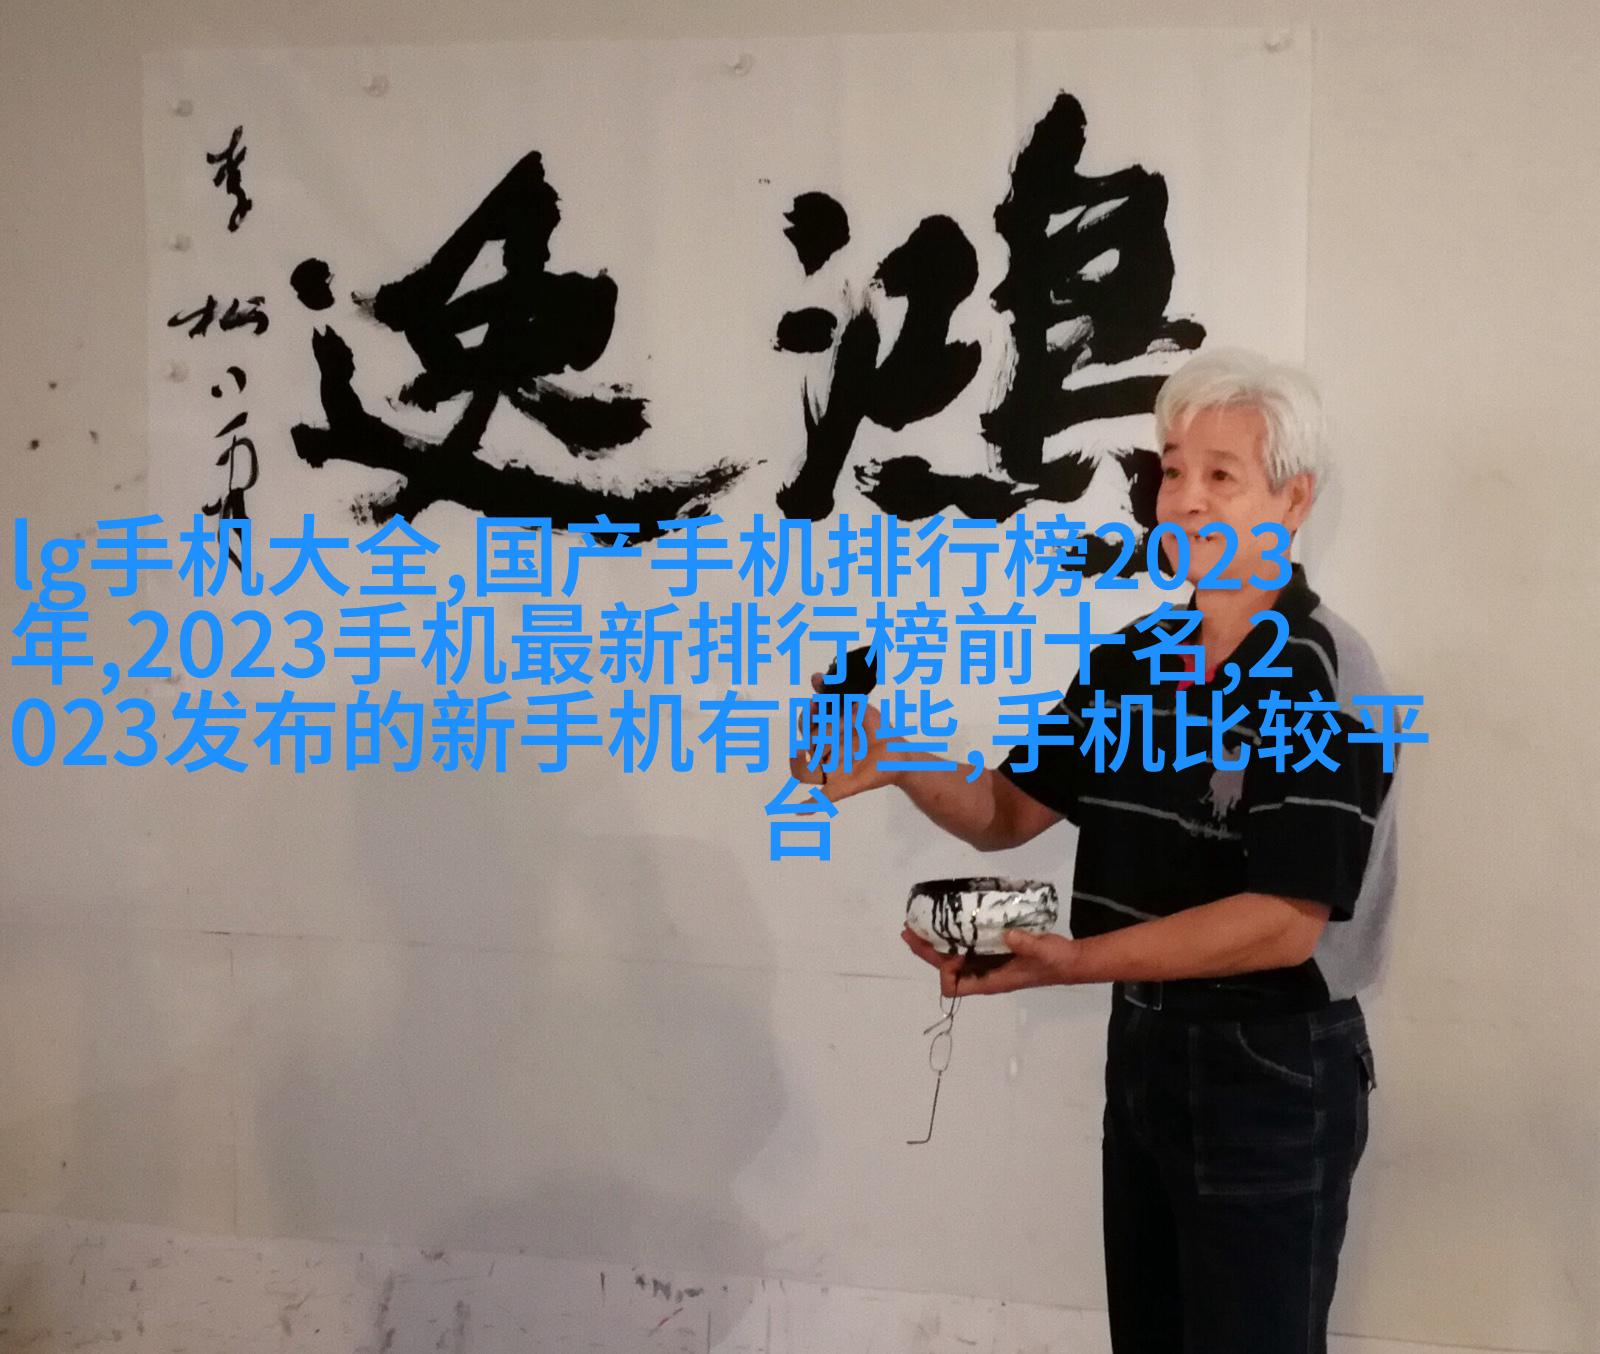 鸿逸
李松
lg手机大全,国产手机排行榜2023
年,2023手机最新排行榜前十名,2
023发布的新手机有哪些,手机比较平
台